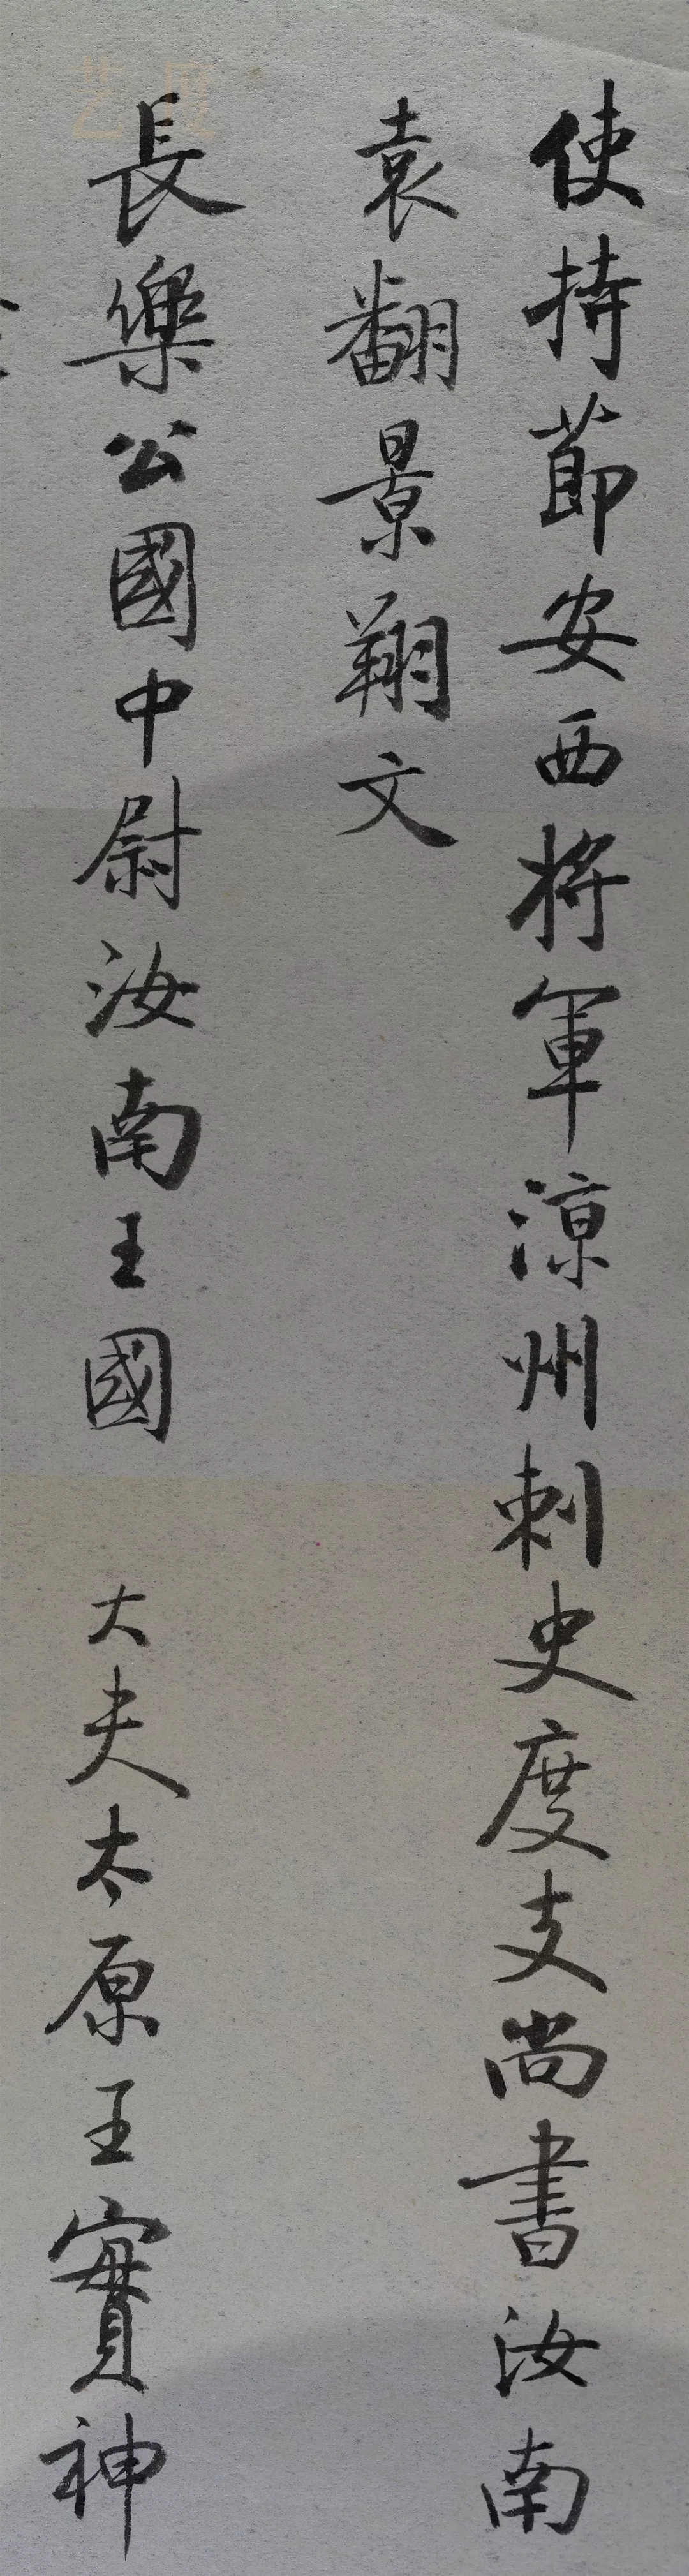 使持節安西將軍涼州刺史度支尚書汝南
袁翻景翔文
長樂公國中尉汝南王國 大夫太原王實神